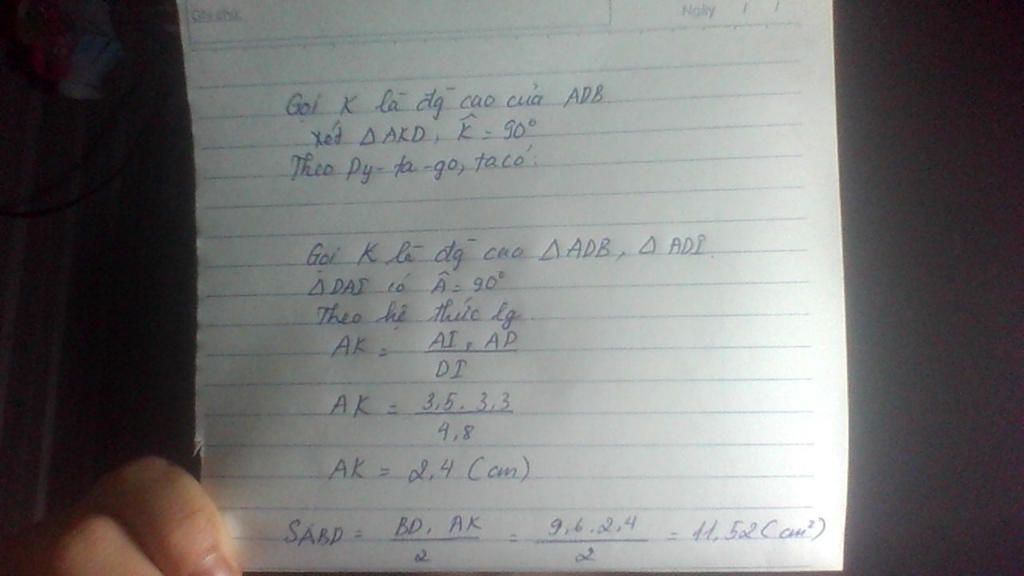 Ghi chú: Ngày / /
Gọi K là đg̅ cao của ADB.
Xét △AKD, K̂ = 90°
Theo Py-ta-go, ta có:
Gọi K là đg̅ cao △ADB, △ADI.
△DAI có Â = 90°
Theo hệ thức lg.
AK = AI . AD / DI
AK = 3,5 . 3,3 / 4,8
AK = 2,4 (cm)
SABD = BD . AK / 2 = 9,6 . 2,4 / 2 = 11,52 (cm²)